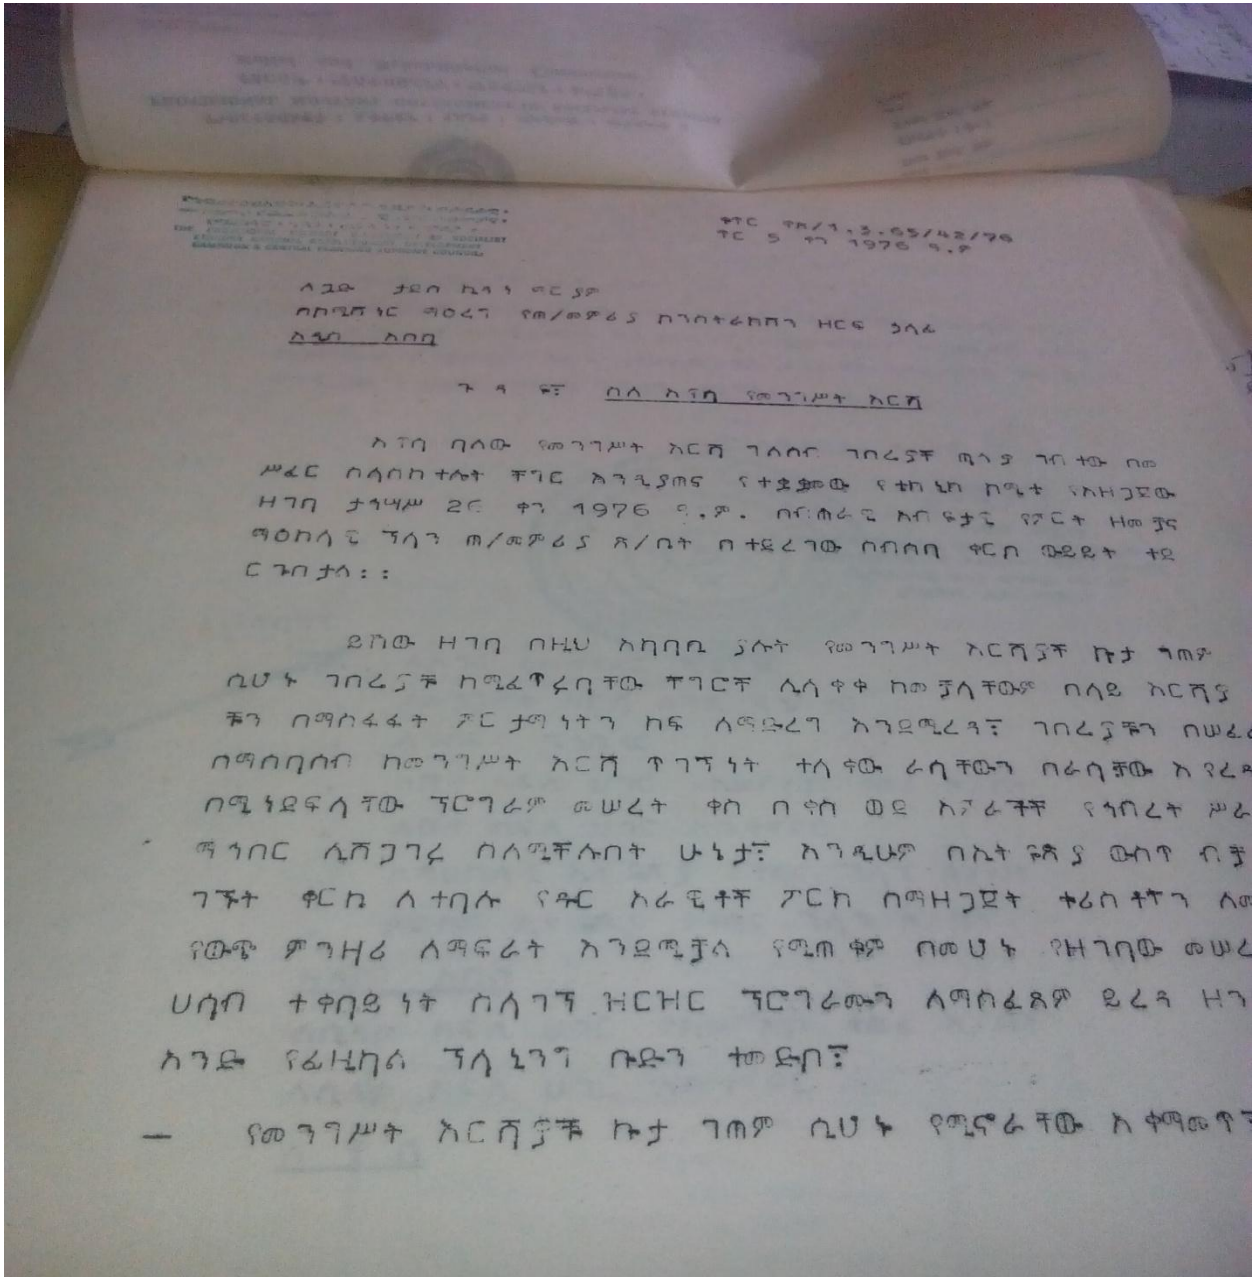 ቁጥር ዋጽ/1.3.65/42/76
ጥር 5 ቀን 1976 ዓ.ም
ለጓድ ታደሰ ኪዳነ ማርያም
በኮሚሽነር ማዕረግ የጠ/መምሪያ ኮንስትራክሽን ዘርፍ ኃላፊ
አዲስ አበባ
ጉዳዩ፤ ስለ አዋሳ የመንግሥት እርሻ
አዋሳ ባለው የመንግሥት እርሻ ገለልተ ገበሬዎች ጣልቃ ገብተው በመ
ሥፈር ስላስከተሉት ችግር እንዲያጠና የተቋቋመው የቴክኒክ ኮሚቴ ያዘጋጀው
ዘገባ ታኅሣሥ 26 ቀን 1976 ዓ.ም. በብሔራዊ አብዮታዊ የምርት ዘመቻና
ማዕከላዊ ፕላን ጠ/መምሪያ ጽ/ቤት በተደረገው ስብሰባ ቀርቦ ውይይት ተደ
ርጎበታል፡፡
ይኸው ዘገባ በዚህ አካባቢ ያሉት የመንግሥት እርሻዎች ኩታ ገጠም
ሲሆኑ ገበሬዎቹ ከሚፈጥሩባቸው ችግሮች ሊላቀቁ ከመቻላቸውም በላይ እርሻዎ
ቹን በማስፋፋት ምርታማነትን ከፍ ለማድረግ እንደሚረዳ፤ ገበሬዎቹን በሠፈራ
በማሰባሰብ ከመንግሥት እርሻ ጥገኝነት ተላቀው ራሳቸውን በራሳቸው እየረዱ
በሚነደፍላቸው ፕሮግራም መሠረት ቀስ በቀስ ወደ አምራቾች የኅብረት ሥራ
ማኅበር ሊሸጋገሩ ስለሚችሉበት ሁኔታ፤ እንዲሁም በኢትዮጵያ ውስጥ ብቻ
ገኙት ቆርኬ ለተባሉ የዱር አራዊቶች ፓርክ በማዘጋጀት ቱሪስቶችን ለመ
የውጭ ምንዛሪ ለማፍራት እንደሚቻል የሚጠቁም በመሆኑ የዘገባው መሠረ
ሀሳብ ተቀባይነት ስላገኘ ዝርዝር ፕሮግራሙን ለማስፈጸም ይረዳ ዘን
አንድ የፊዚካል ፕላኒንግ ቡድን ተመድቦ፤
— የመንግሥት እርሻዎቹ ኩታ ገጠም ሲሆኑ የሚኖራቸው አቀማመጥ